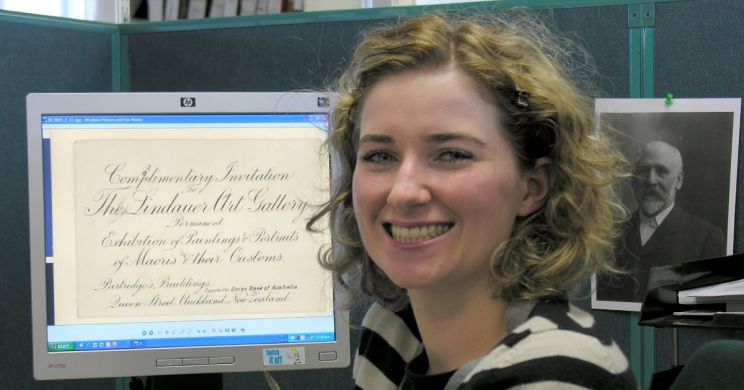 hp
Windows Picture and Fax Viewer
Complimentary Invitation
To
The Lindauer Art Gallery
Permanent
Exhibition of Paintings & Portraits
of Maoris & their Customs.
Partridge's Buildings, Opposite Union Bank of Australia.
Queen Street, Auckland, New Zealand.
start
Switch
it off